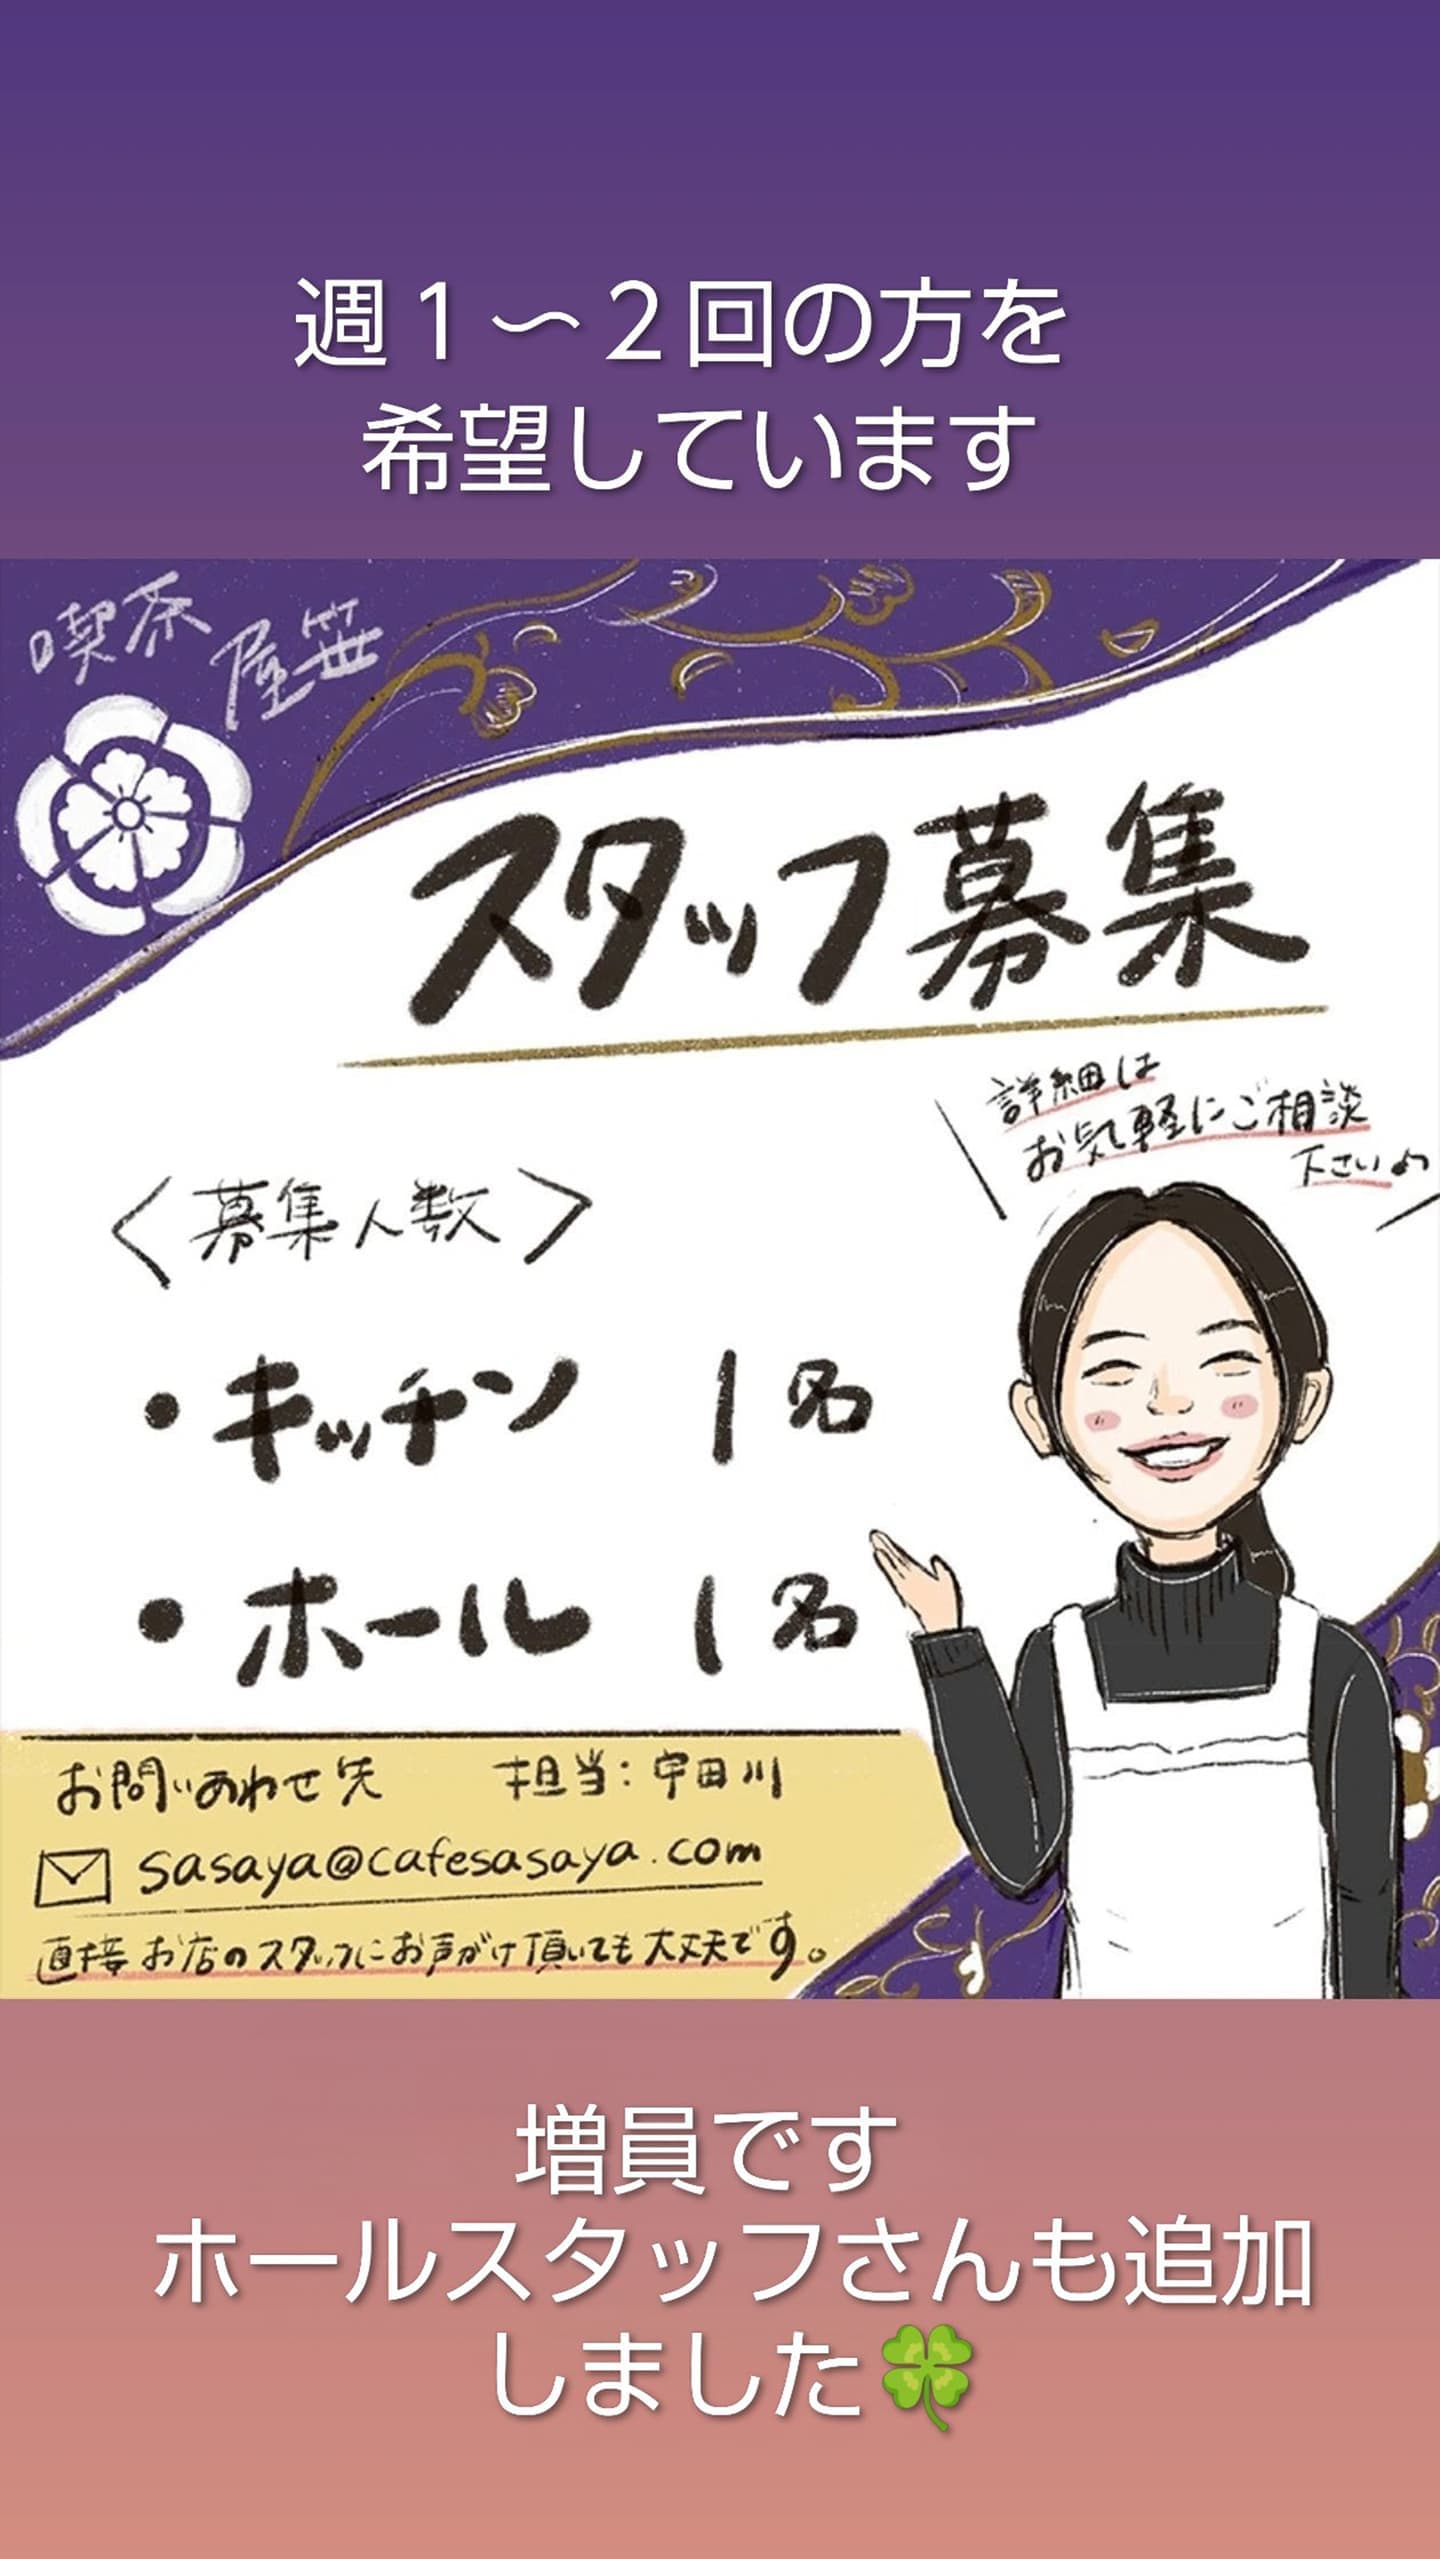 週1〜2回の方を
希望しています
喫茶
屋笹
スタッフ募集
詳細は
お気軽にご相談
下さい
〈募集人数〉
・キッチン 1名
・ホール 1名
お問いあわせ先 担当:宇田川
sasaya@cafesasaya.com
直接お店のスタッフにお声がけ頂いても大丈夫です。
増員です
ホールスタッフさんも追加
しました🍀